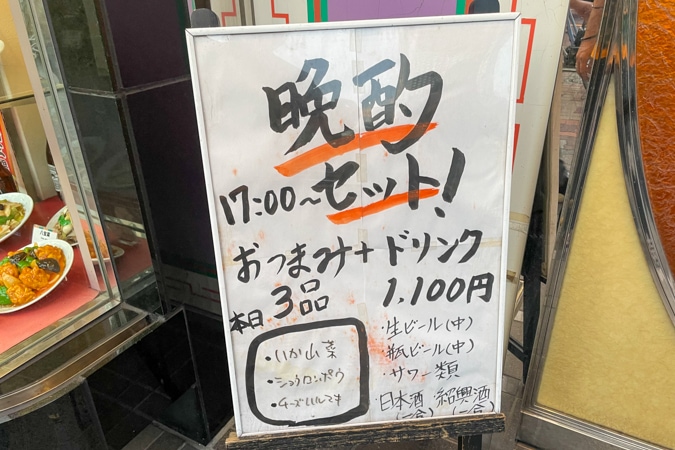 晩酌
17:00〜セット!
おつまみ+ドリンク
本日3品 1,100円
・いか山菜
・ショウロンポウ
・チーズいしてき
・生ビール(中)
・瓶ビール(中)
・サワー類
・日本酒(一合) 紹興酒(一合)